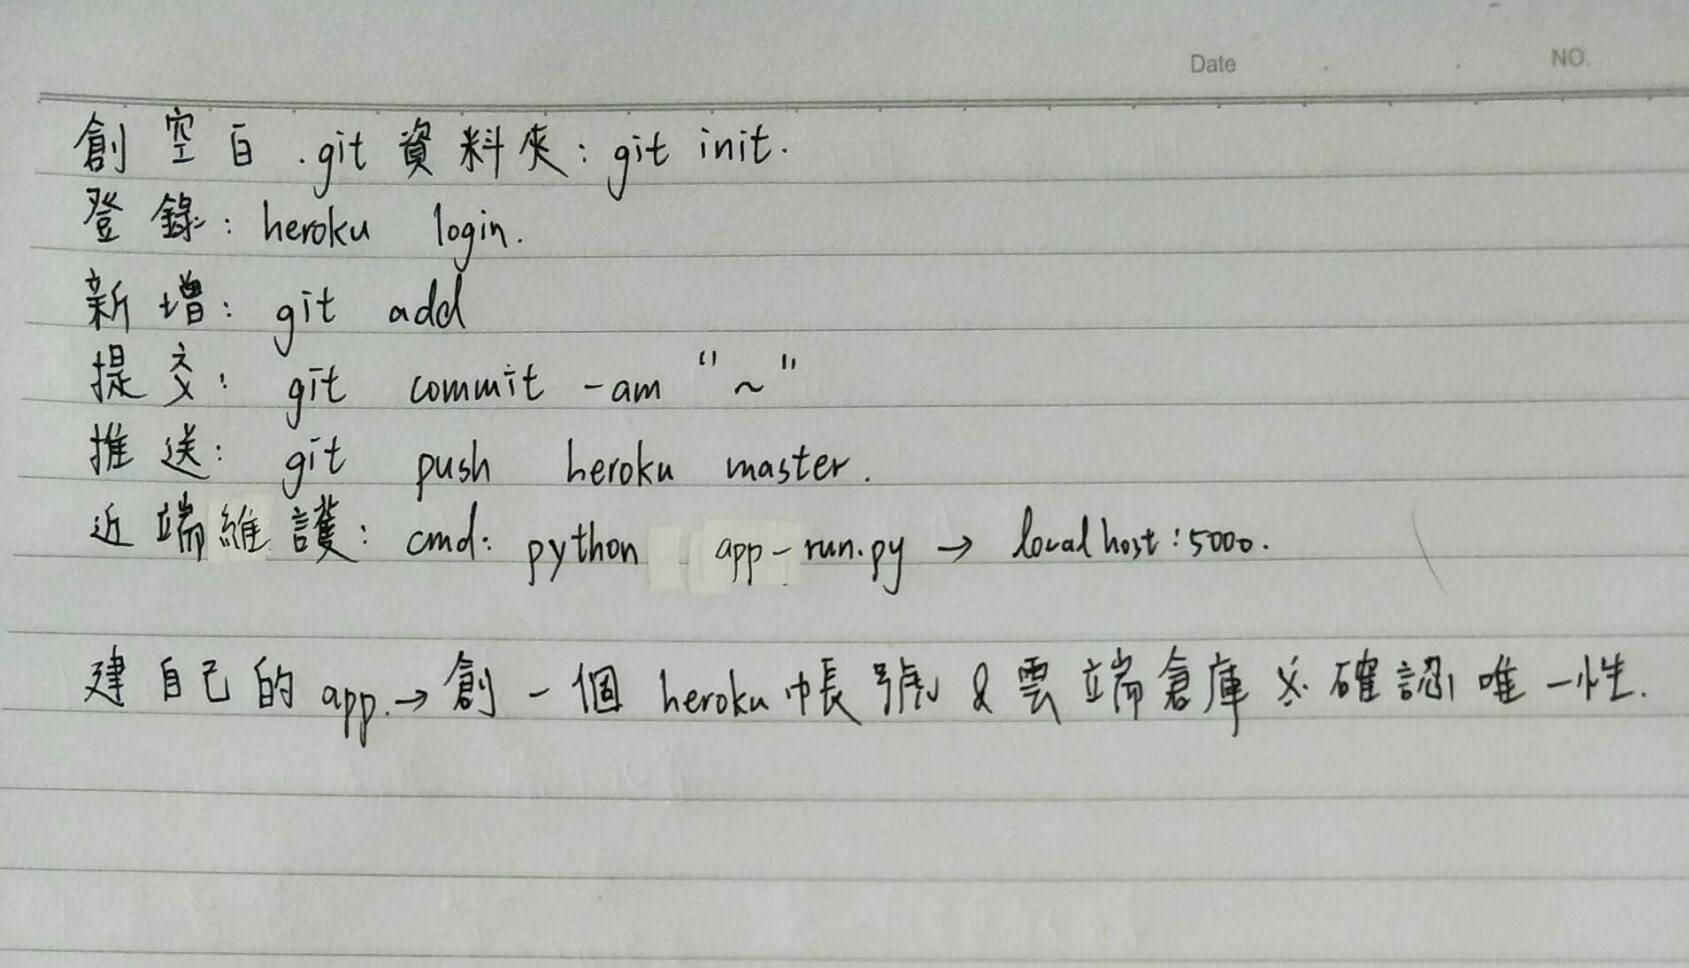 Date . . NO.
創空白 .git 資料夾: git init.
登錄: heroku login.
新增: git add
提交: git commit -am "~"
推送: git push heroku master.
近端維護: cmd: python app-run.py → localhost:5000.
建自己的 app. → 創一個 heroku 帳號 & 雲端倉庫 ※確認唯一性.